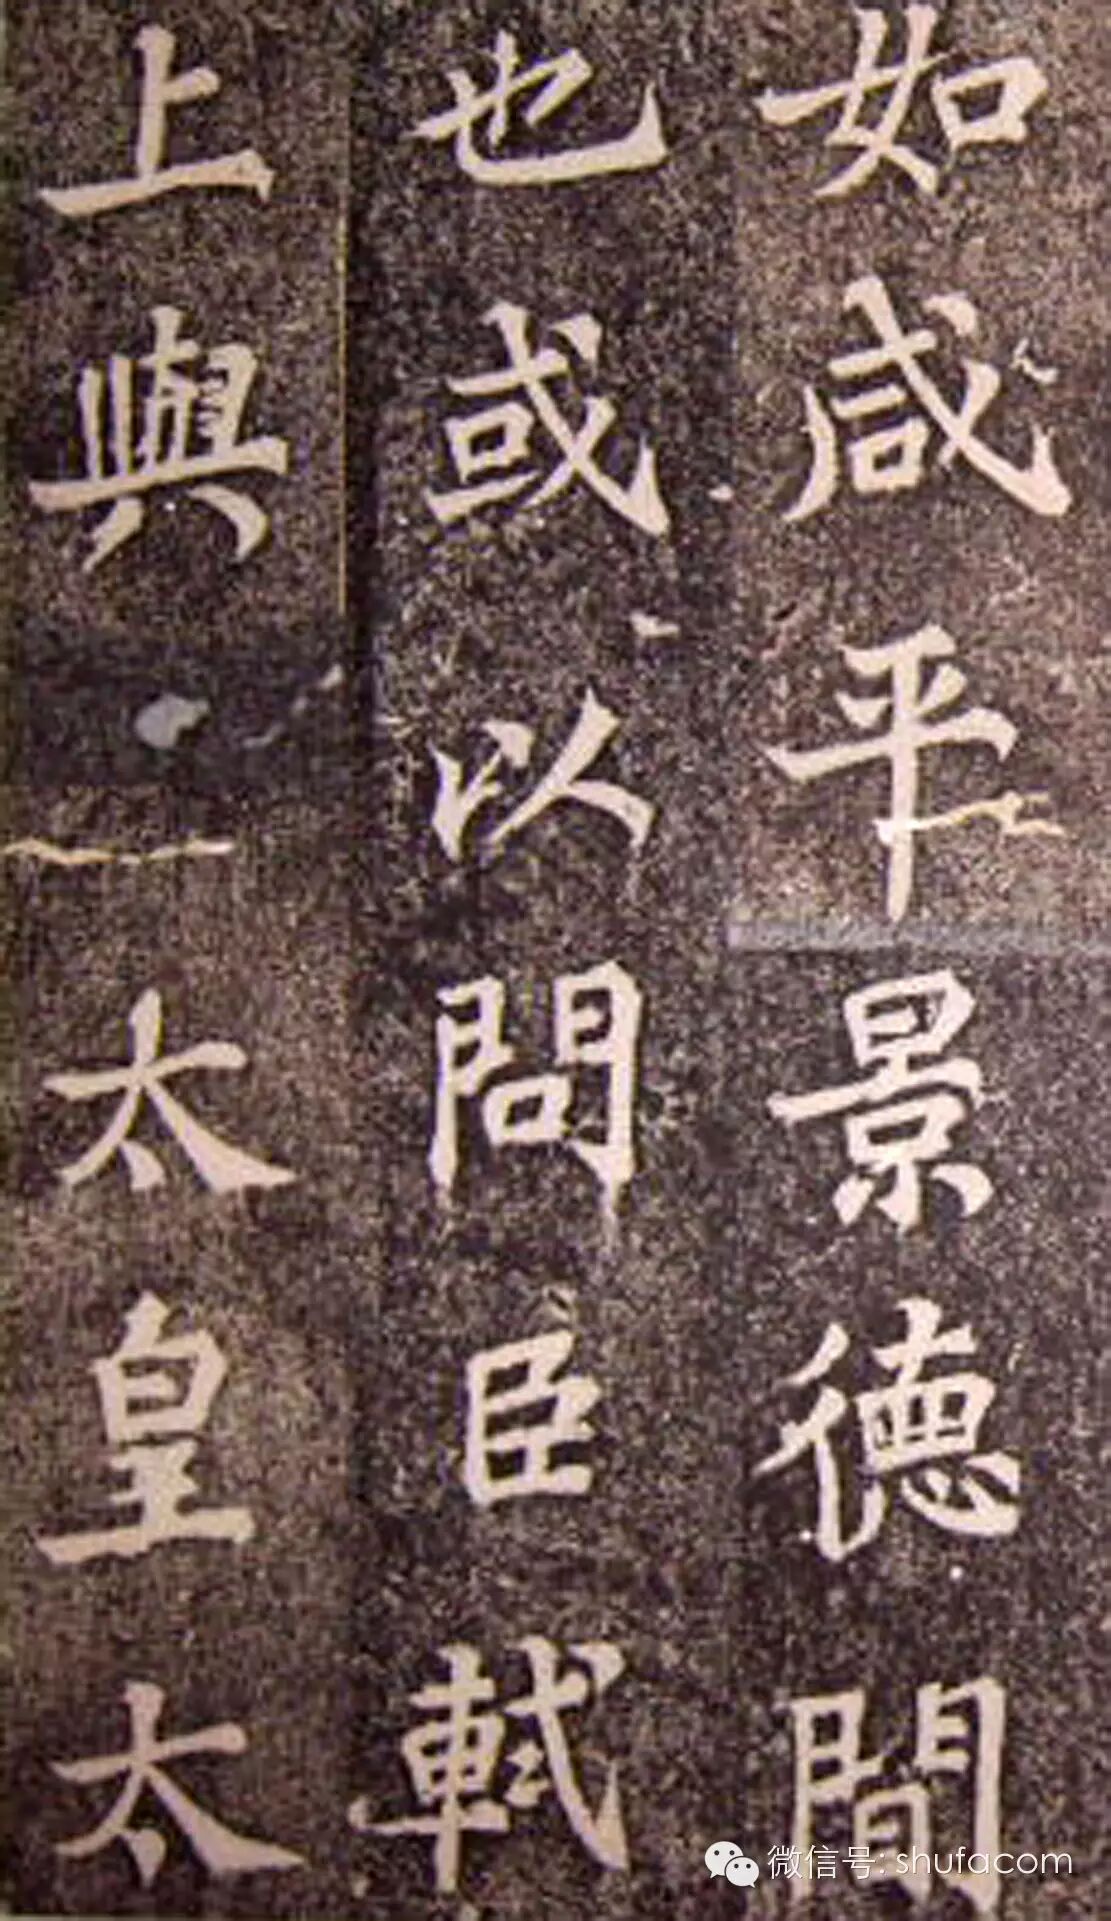 如咸平景德間
也或以問臣軾
上與太皇太
微信号: shufacom